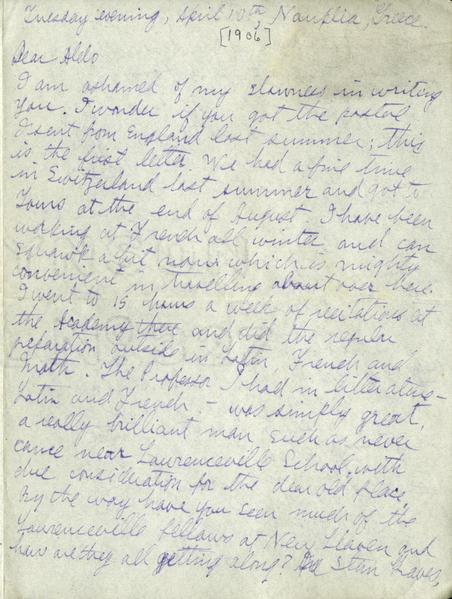 Tuesday evening, April 10th, Nauplia, Greece
[1906]
Dear Aldo
I am ashamed of my slowness in writing
you. I wonder if you got the postal
I sent from England last summer; this
is the first letter. We had a fine time
in Switzerland last summer and got to
Tours at the end of August. I have been
working at French all winter and can
squawk a bit now which is mighty
convenient in travelling about over here.
I went to 15 hours a week of recitations at
the Academy there and did the regular
preparation outside in Latin, French and
Math. The Professor I had in litterature -
Latin and French, - was simply great,
a really brilliant man such as never
came near Lawrenceville School, with
due consideration for the dear old place
By the way have you seen much of the
Lawrenceville fellows at New Haven and
how are they all getting along? Stan